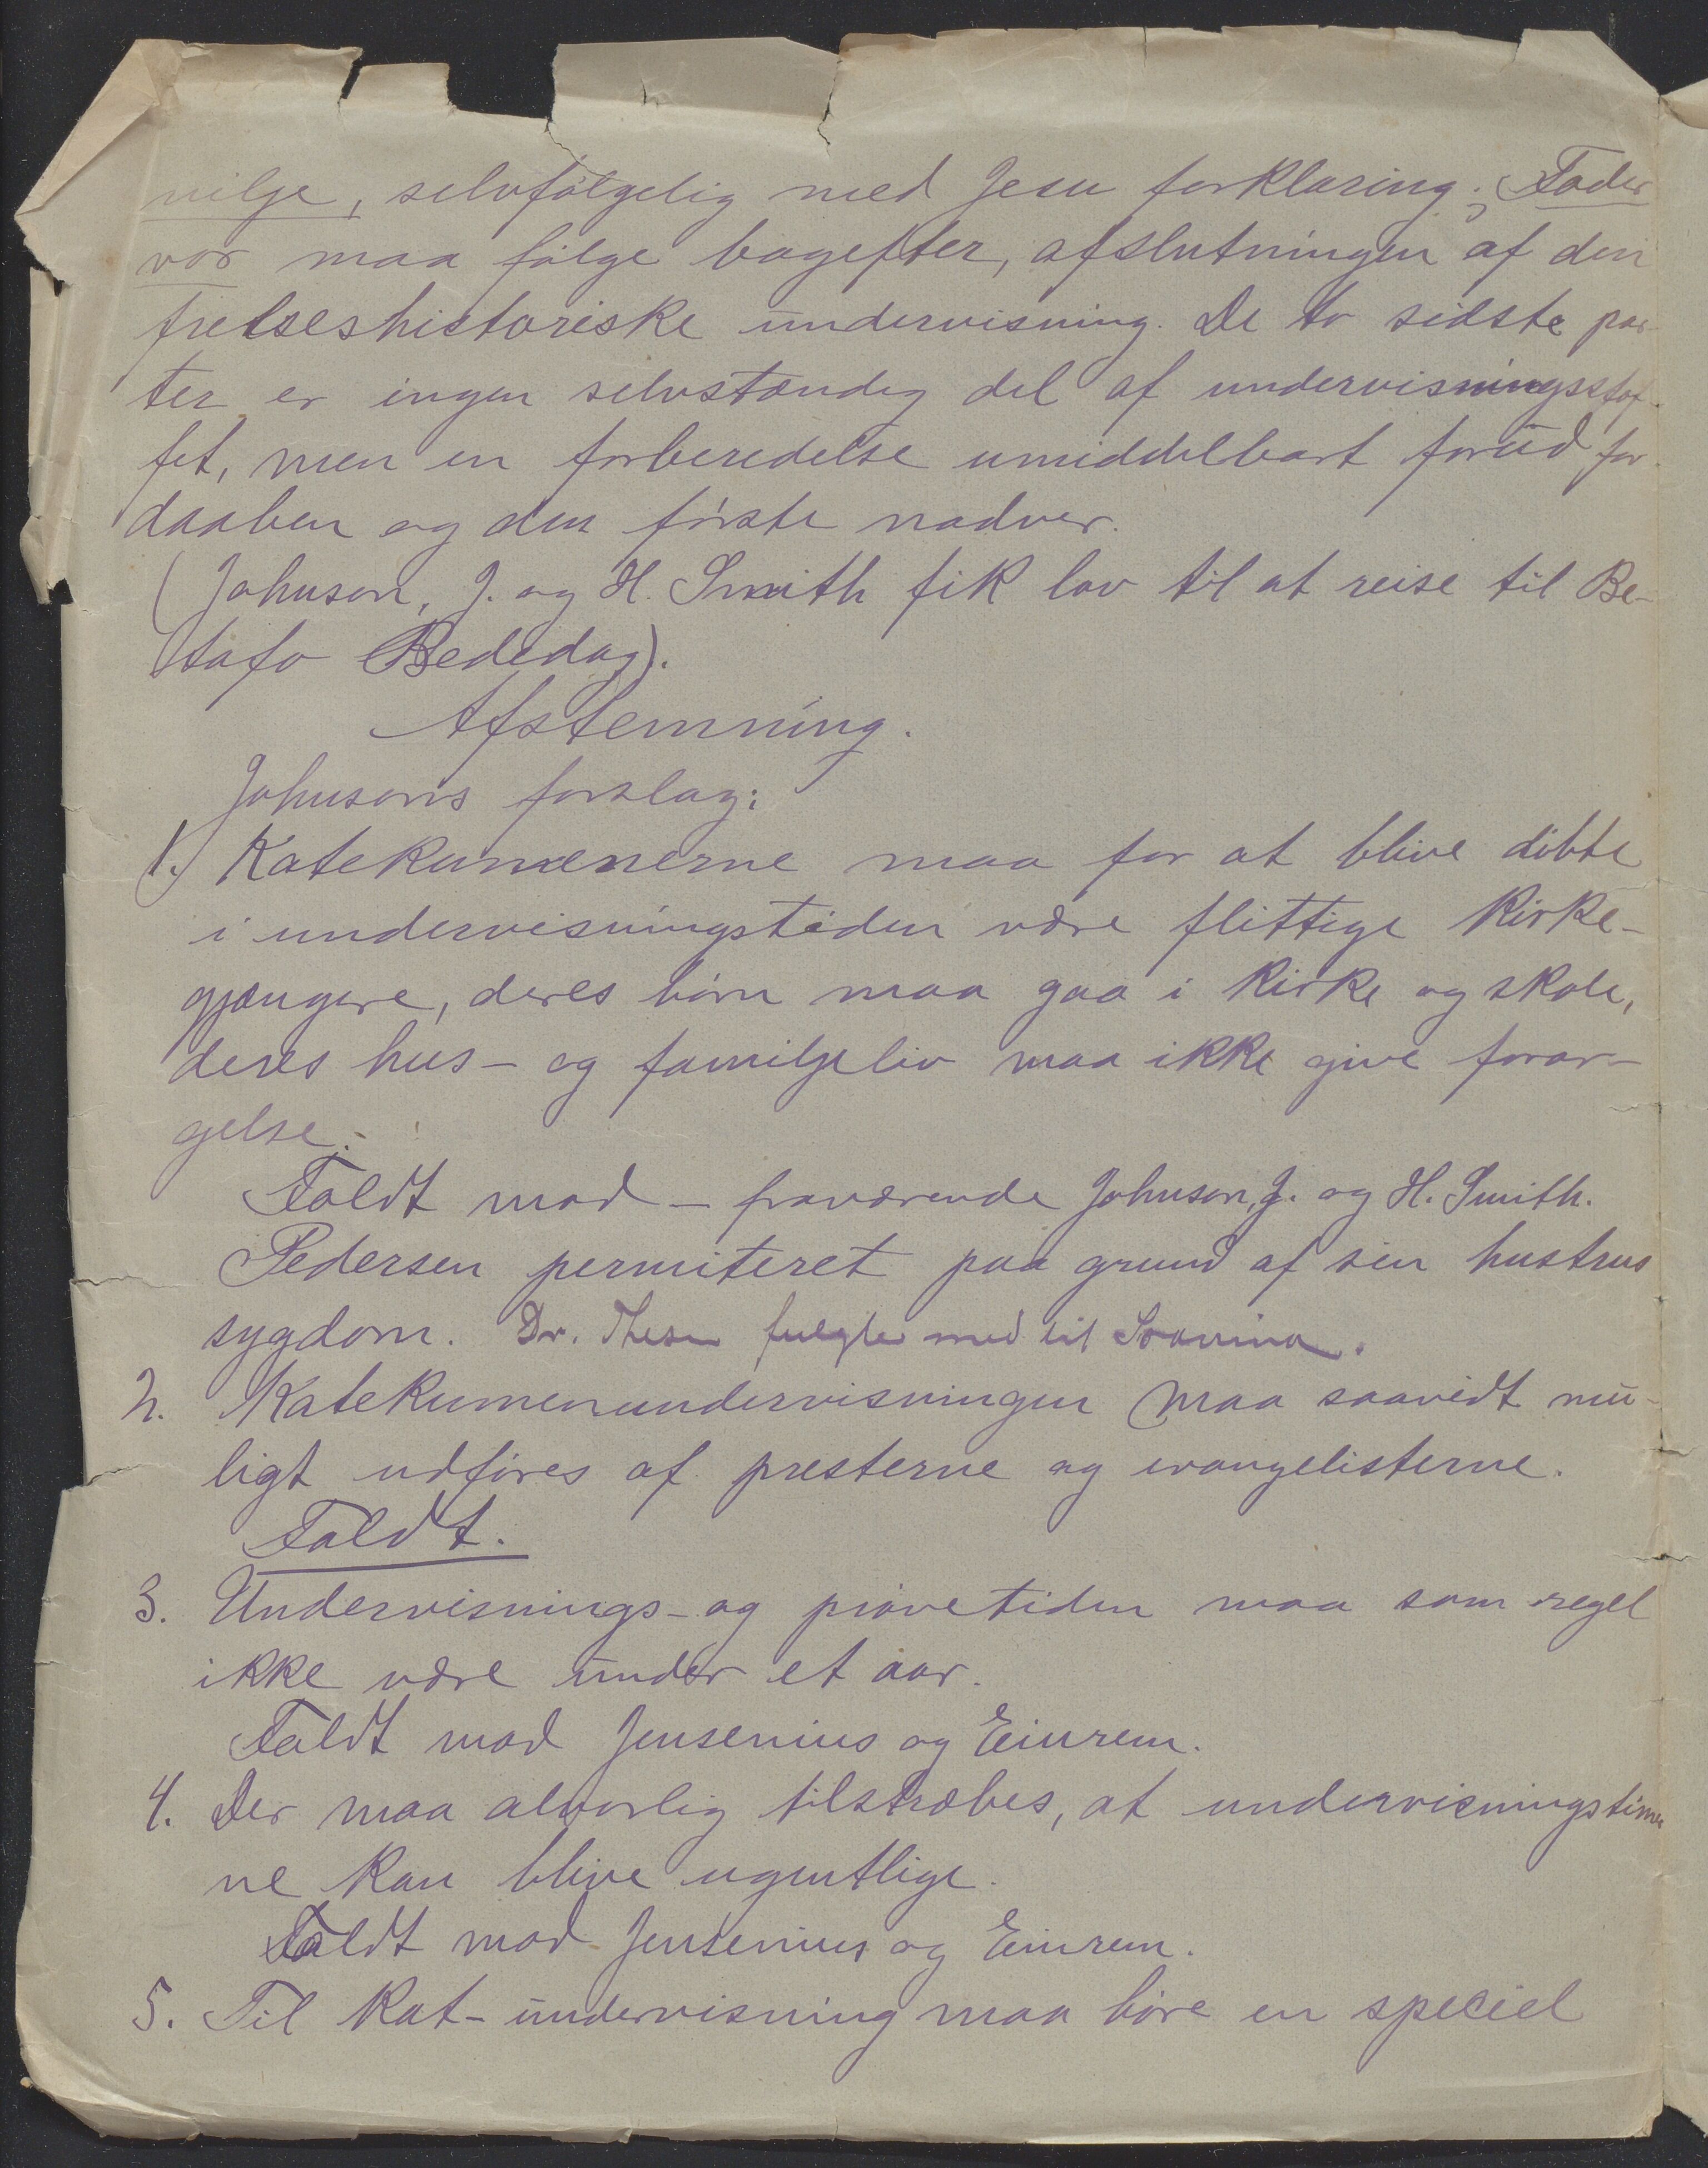 vilje, selvfølgelig med Jesu forklaring; Fader
vor maa følge bagefter, afslutningen af den
frelseshistoriske undervisning. De to sidste par-
ter er ingen selvstændig del af undervisningsstof-
fet, men en forberedelse umiddelbart forud for
daaben og den første nadver.
(Johnson, J. og H. Smith fik lov til at reise til Be-
tafo Bededag).
Afstemning.
Johnsons forslag:
1. Katekumenerne maa for at blive döbte
i undervisningstiden være flittige kirke-
gjængere, deres börn maa gaa i kirke og skole,
deres hus- og familjeliv maa ikke give forar-
gelse.
Faldt mod – fraværende Johnson, J. og H. Smith.
Pedersen permiteret paa grund af sin hustrus
sygdom. Dr. Thesen fulgte med til Soavina.
2. Katekumenundervisningen maa saavidt mu-
ligt udføres af presterne og evangelisterne.
Faldt.
3. Undervisnings- og prövetiden maa som regel
ikke være under et aar.
Faldt mod Jensenius og Einrem.
4. Der maa alvorlig tilstræbes, at undervisningstimer
ne kan blive ugentlige.
Faldt mod Jensenius og Einrem.
5. Til kat-undervisning maa höre en speciel